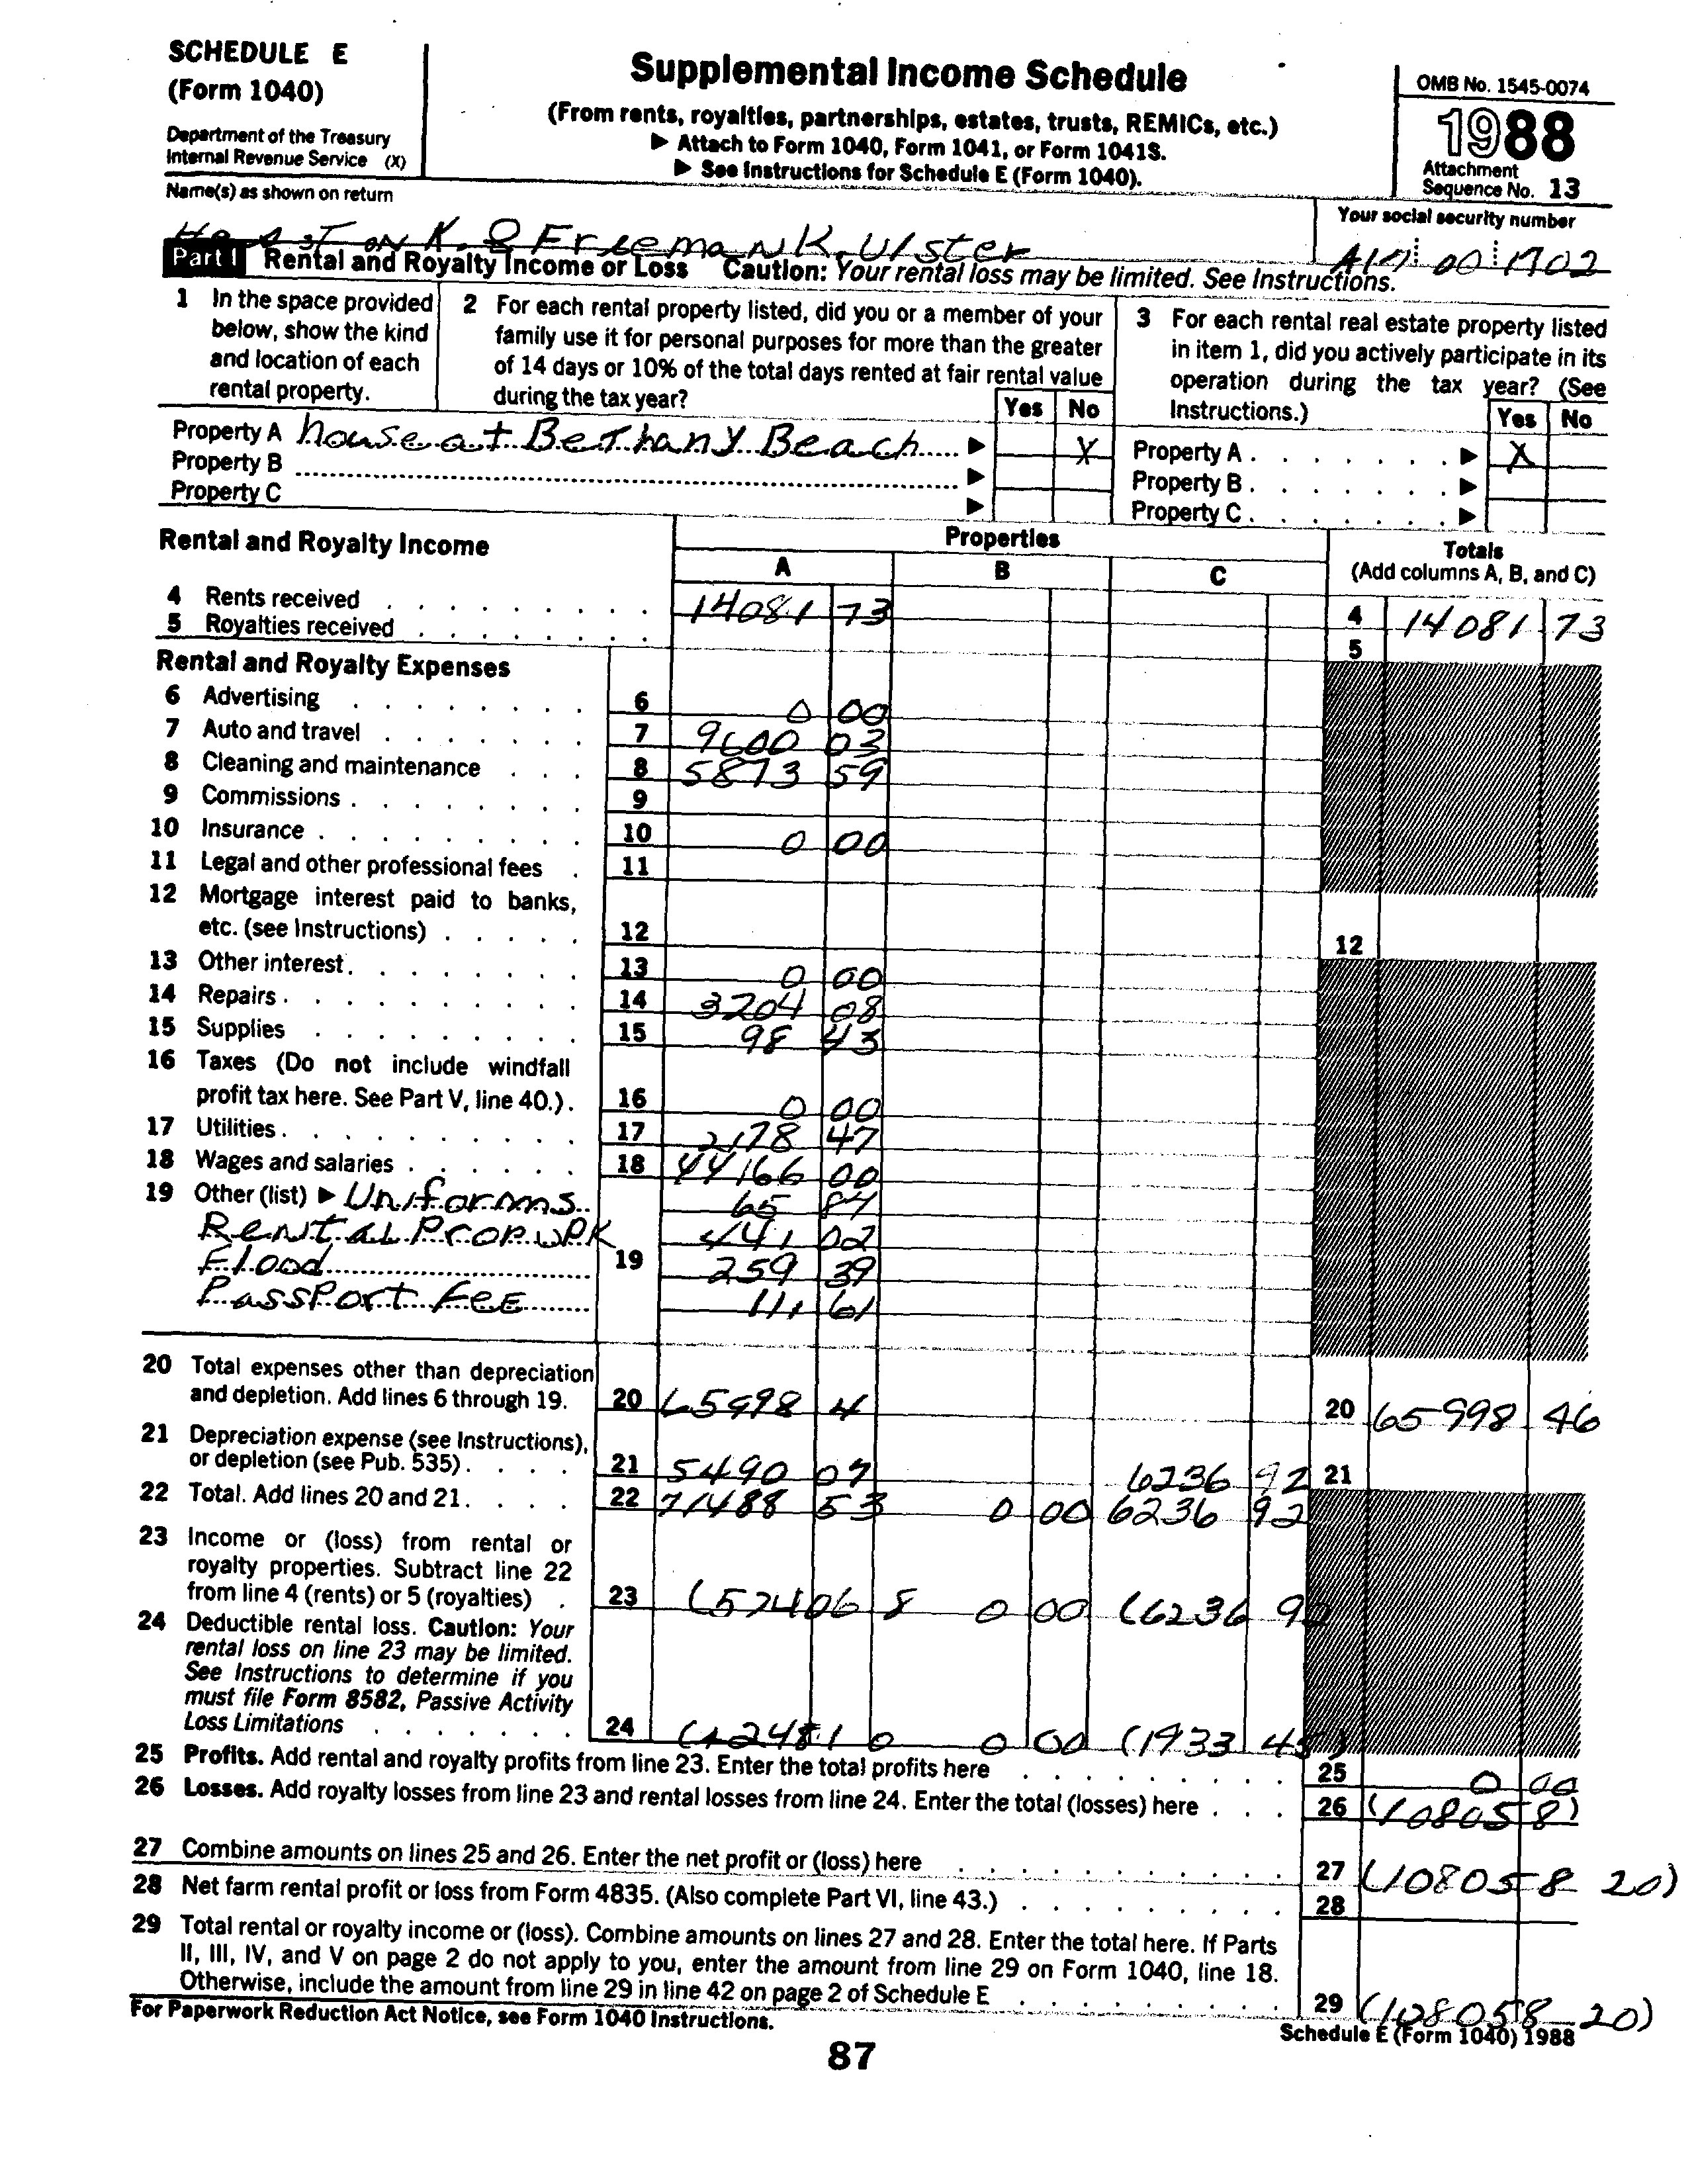 SCHEDULE E
(Form 1040)
Department of the Treasury
Internal Revenue Service (X)
Supplemental Income Schedule
(From rents, royalties, partnerships, estates, trusts, REMICs, etc.)
▶ Attach to Form 1040, Form 1041, or Form 1041S.
▶ See Instructions for Schedule E (Form 1040).
OMB No. 1545-0074
1988
Attachment
Sequence No. 13
Name(s) as shown on return
K. & Freeman K. Ulster
Your social security number
00 1702
Part I Rental and Royalty Income or Loss Caution: Your rental loss may be limited. See Instructions.
1 In the space provided
below, show the kind
and location of each
rental property.
2 For each rental property listed, did you or a member of your
family use it for personal purposes for more than the greater
of 14 days or 10% of the total days rented at fair rental value
during the tax year?
Yes No
3 For each rental real estate property listed
in item 1, did you actively participate in its
operation during the tax year? (See
Instructions.)
Yes No
Property A house at Bethany Beach ▶ X
Property B ▶
Property C ▶
Property A ▶ X
Property B ▶
Property C ▶
Rental and Royalty Income
Properties
A B C
Totals
(Add columns A, B, and C)
4 Rents received 14081 73 4 14081 73
5 Royalties received 5
Rental and Royalty Expenses
6 Advertising 6 0 00
7 Auto and travel 7 9600 03
8 Cleaning and maintenance 8 5873 59
9 Commissions 9
10 Insurance 10 0 00
11 Legal and other professional fees 11
12 Mortgage interest paid to banks,
etc. (see Instructions) 12 12
13 Other interest 13 0 00
14 Repairs 14 3204 08
15 Supplies 15 98 43
16 Taxes (Do not include windfall
profit tax here. See Part V, line 40.) 16 0 00
17 Utilities 17 2178 47
18 Wages and salaries 18 44166 00
19 Other (list) ▶ Uniforms 65 84
Rental Prop WRK 441 02
Flood 19 259 39
Passport Fee 111 61
20 Total expenses other than depreciation
and depletion. Add lines 6 through 19. 20 65998 4 20 65998 46
21 Depreciation expense (see Instructions),
or depletion (see Pub. 535) 21 5490 07 6236 92 21
22 Total. Add lines 20 and 21 22 71488 53 0 00 6236 92
23 Income or (loss) from rental or
royalty properties. Subtract line 22
from line 4 (rents) or 5 (royalties) 23 (57406 8 0 00 (6236 92
24 Deductible rental loss. Caution: Your
rental loss on line 23 may be limited.
See Instructions to determine if you
must file Form 8582, Passive Activity
Loss Limitations 24 0 00
25 Profits. Add rental and royalty profits from line 23. Enter the total profits here 25 0 00
26 Losses. Add royalty losses from line 23 and rental losses from line 24. Enter the total (losses) here 26 (108058)
27 Combine amounts on lines 25 and 26. Enter the net profit or (loss) here 27 (108058 20)
28 Net farm rental profit or loss from Form 4835. (Also complete Part VI, line 43.) 28
29 Total rental or royalty income or (loss). Combine amounts on lines 27 and 28. Enter the total here. If Parts
II, III, IV, and V on page 2 do not apply to you, enter the amount from line 29 on Form 1040, line 18.
Otherwise, include the amount from line 29 in line 42 on page 2 of Schedule E 29 (108058 20)
For Paperwork Reduction Act Notice, see Form 1040 Instructions.
Schedule E (Form 1040) 1988
87